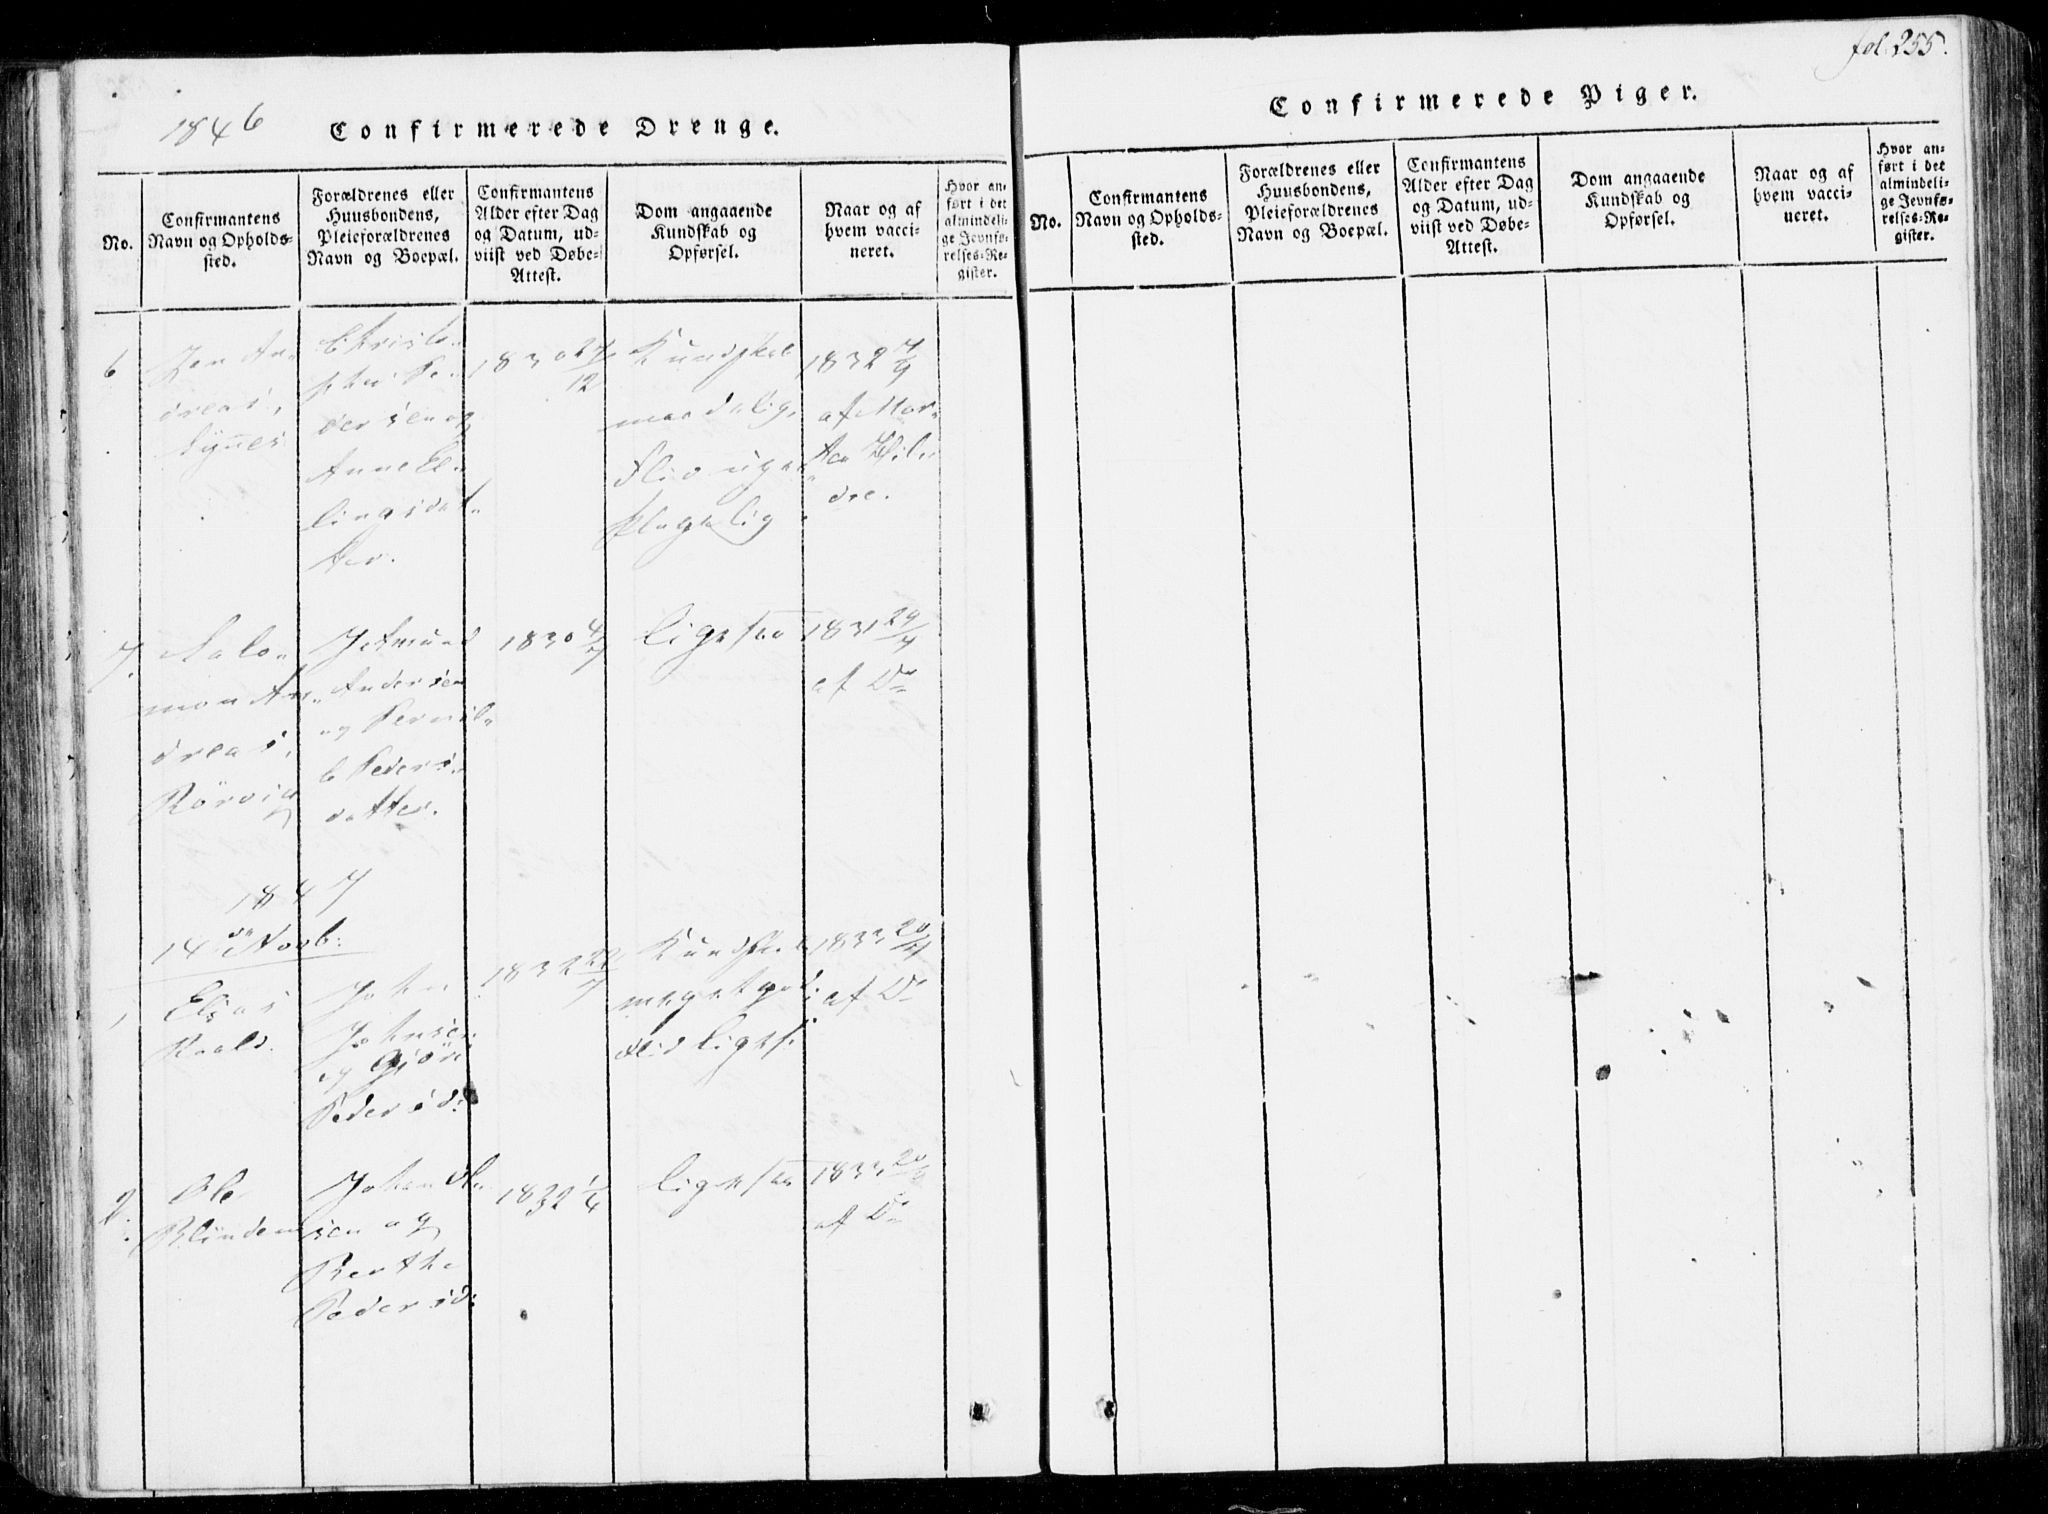 fol. 255.
1846
Confirmerede Drenge.
No.
Confirmantens
Navn og Opholds-
sted.
Forældrenes eller
Huusbondens,
Pleieforældrenes
Navn og Boepæl.
Confirmantens
Alder efter Dag
og Datum, ud-
viist ved Døbe-
Attest.
Dom angaaende
Kundskab og
Opførsel.
Naar og af
hvem vacci-
neret.
Hvor an-
ført i det
almindeli-
ge Jevnfø-
relses-Re-
gister.
6
Jon An-
dreas,
Christo-
pher Pe-
dersen og
Anne El-
lingsdat-
ter.
1830 24/12
Kundskab
maadelig,
Flid uge-
klagelig
1832 7/9
af Mor-
ten
dre.
7.
Salo-
mon An-
dreas,
Rörvig
Jetmund
Andersen
og Pernil-
le Peders-
datter.
1830 4/7
ligesaa
1831 29/7
af Do
1847
14de Novb:
1
Elias
Raald.
John
Johnsen
og Gjöri
Pedersd:
1832 22/7
Kundskab
meget god:
Flid liges:
1833 20/7
af Do
2.
Ole
Blindem
Johan Ol-
sen og
Berthe
Pedersd:
1832 1/6
ligesaa
1833
af Do
Confirmerede Piger.
No.
Confirmantens
Navn og Opholds-
sted.
Forældrenes eller
Huusbondens,
Pleieforældrenes
Navn og Boepæl.
Confirmantens
Alder efter Dag
og Datum, ud-
viist ved Døbe-
Attest.
Dom angaaende
Kundskab og
Opførsel.
Naar og af
hvem vacci-
neret.
Hvor an-
ført i det
almindeli-
ge Jevnfø-
relses-Re-
gister.